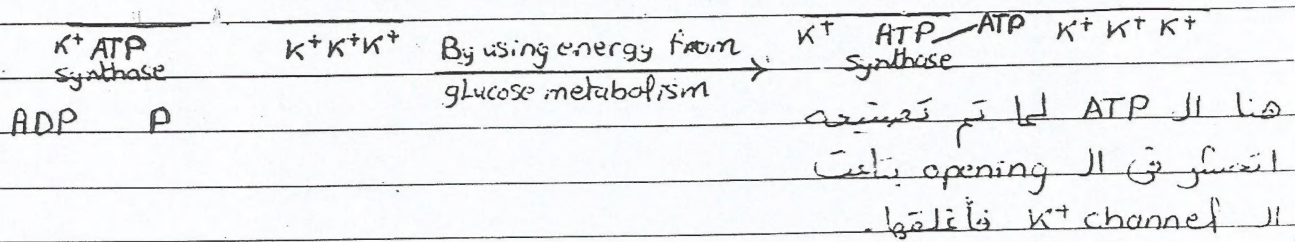 K⁺ ATP synthase K⁺ K⁺ K⁺
ADP P
By using energy from
glucose metabolism
K⁺ ATP synthase ATP K⁺ K⁺ K⁺
هنا ال ATP لما تم تصنيعه
اتحشر فى ال opening بتاعت
ال K⁺ channel فأغلقها.